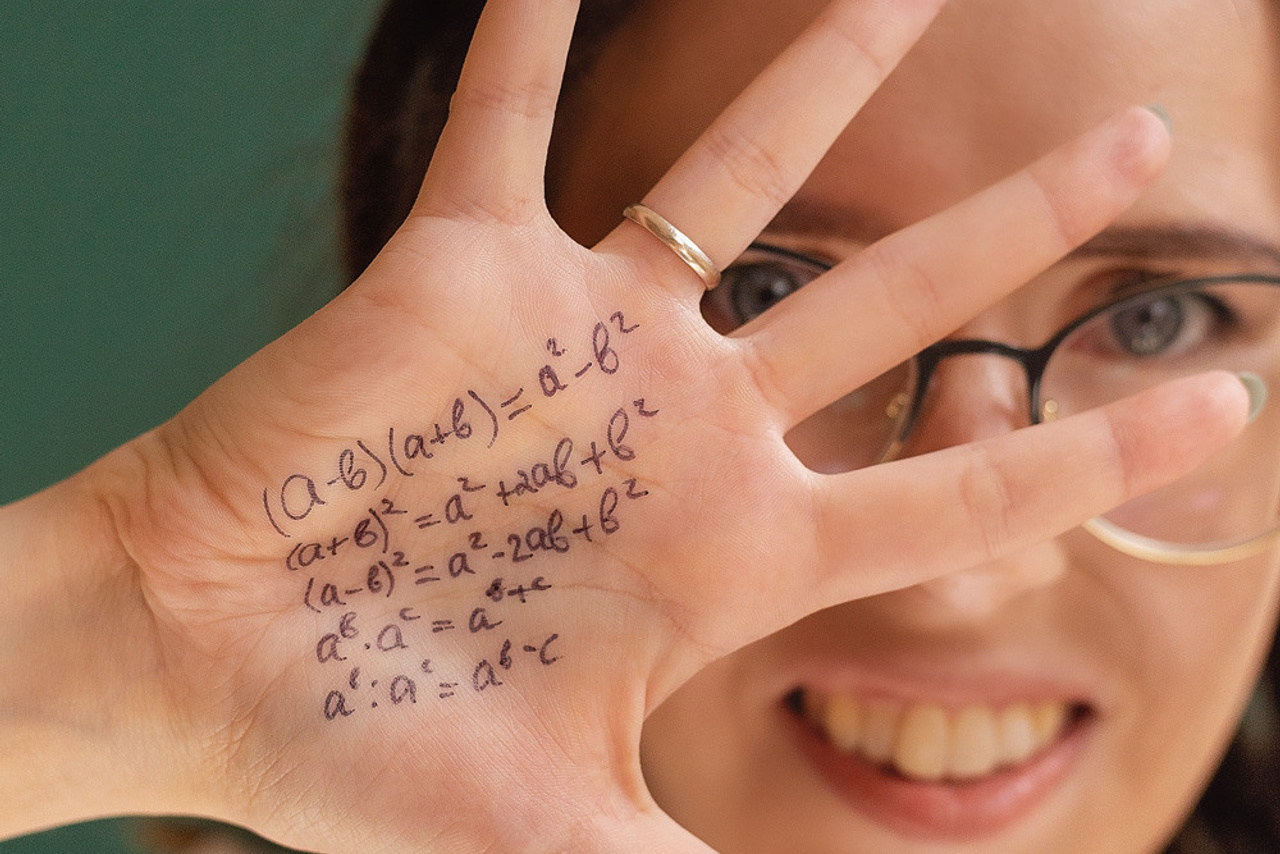 (a-b)(a+b)=a²-b²
(a+b)²=a²+2ab+b²
(a-b)²=a²-2ab+b²
aᵇ·aᶜ=aᵇ⁺ᶜ
aᵇ:aᶜ=aᵇ⁻ᶜ